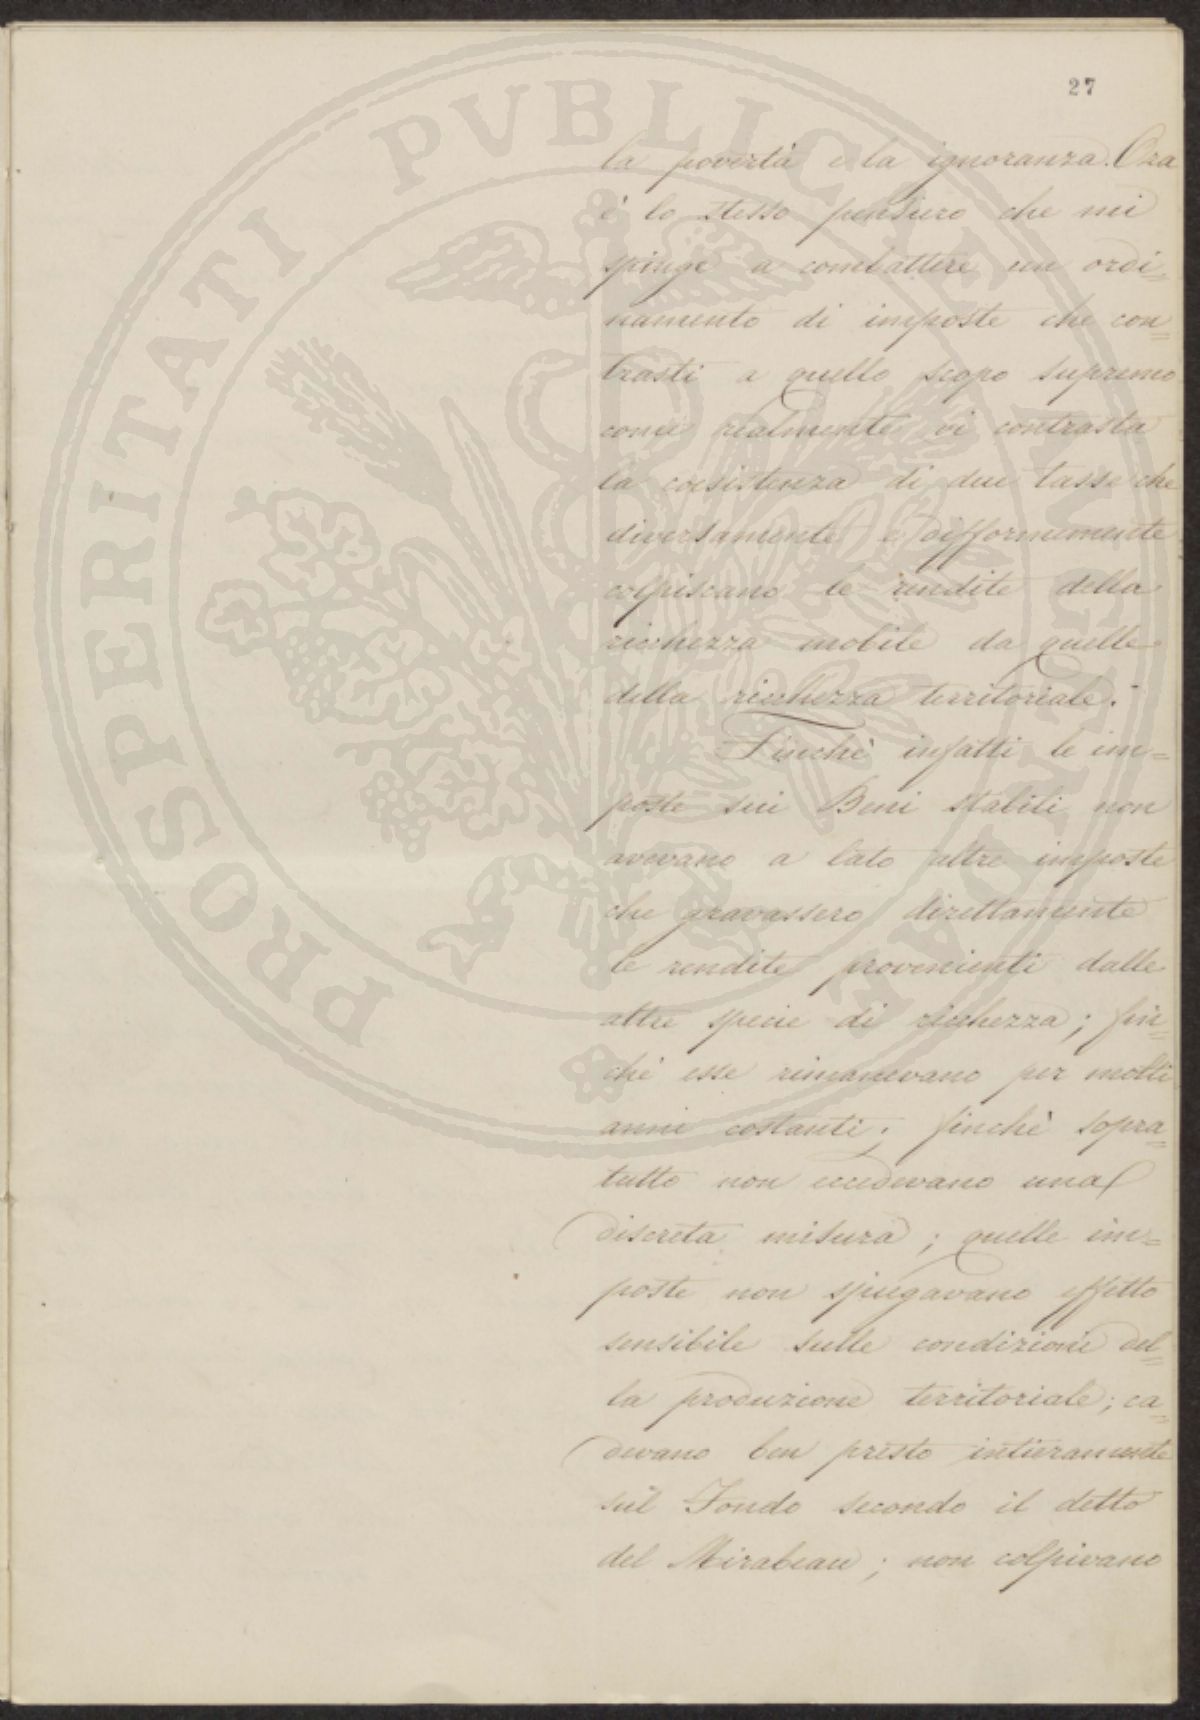 27
la povertà e la ignoranza. Ora
è lo stesso pensiero che mi
spinge a combattere un ordi-
namento di imposte che con=
trasti a quello scopo supremo
come realmente vi contrasta
la coesistenza di due tasse che
diversamente e difformemente
colpiscano le rendite della
ricchezza mobile da quelle
della ricchezza territoriale.
Finchè infatti le im=
poste sui Beni stabili non
avevano a lato altre imposte
che gravassero direttamente
le rendite provenienti dalle
altre specie di ricchezza; fin=
chè esse rimanevano per molti
anni costanti; finchè sopra=
tutto non eccedevano una
discreta misura; quelle im=
poste non spiegavano effetto
sensibile sulle condizioni del=
la produzione territoriale; ca=
devano ben presto intieramente
sul Fondo secondo il detto
del Mirabeau; non colpivano
PROSPERITATI PVBLICAE